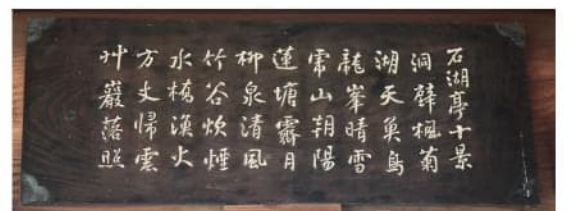 石湖亭十景
洞薜楓菊
湖天奠鳥
龍峯晴雪
常山朝陽
蓮塘霽月
柳泉清風
竹谷炊煙
水橋漁火
方丈歸雲
艸巖落照